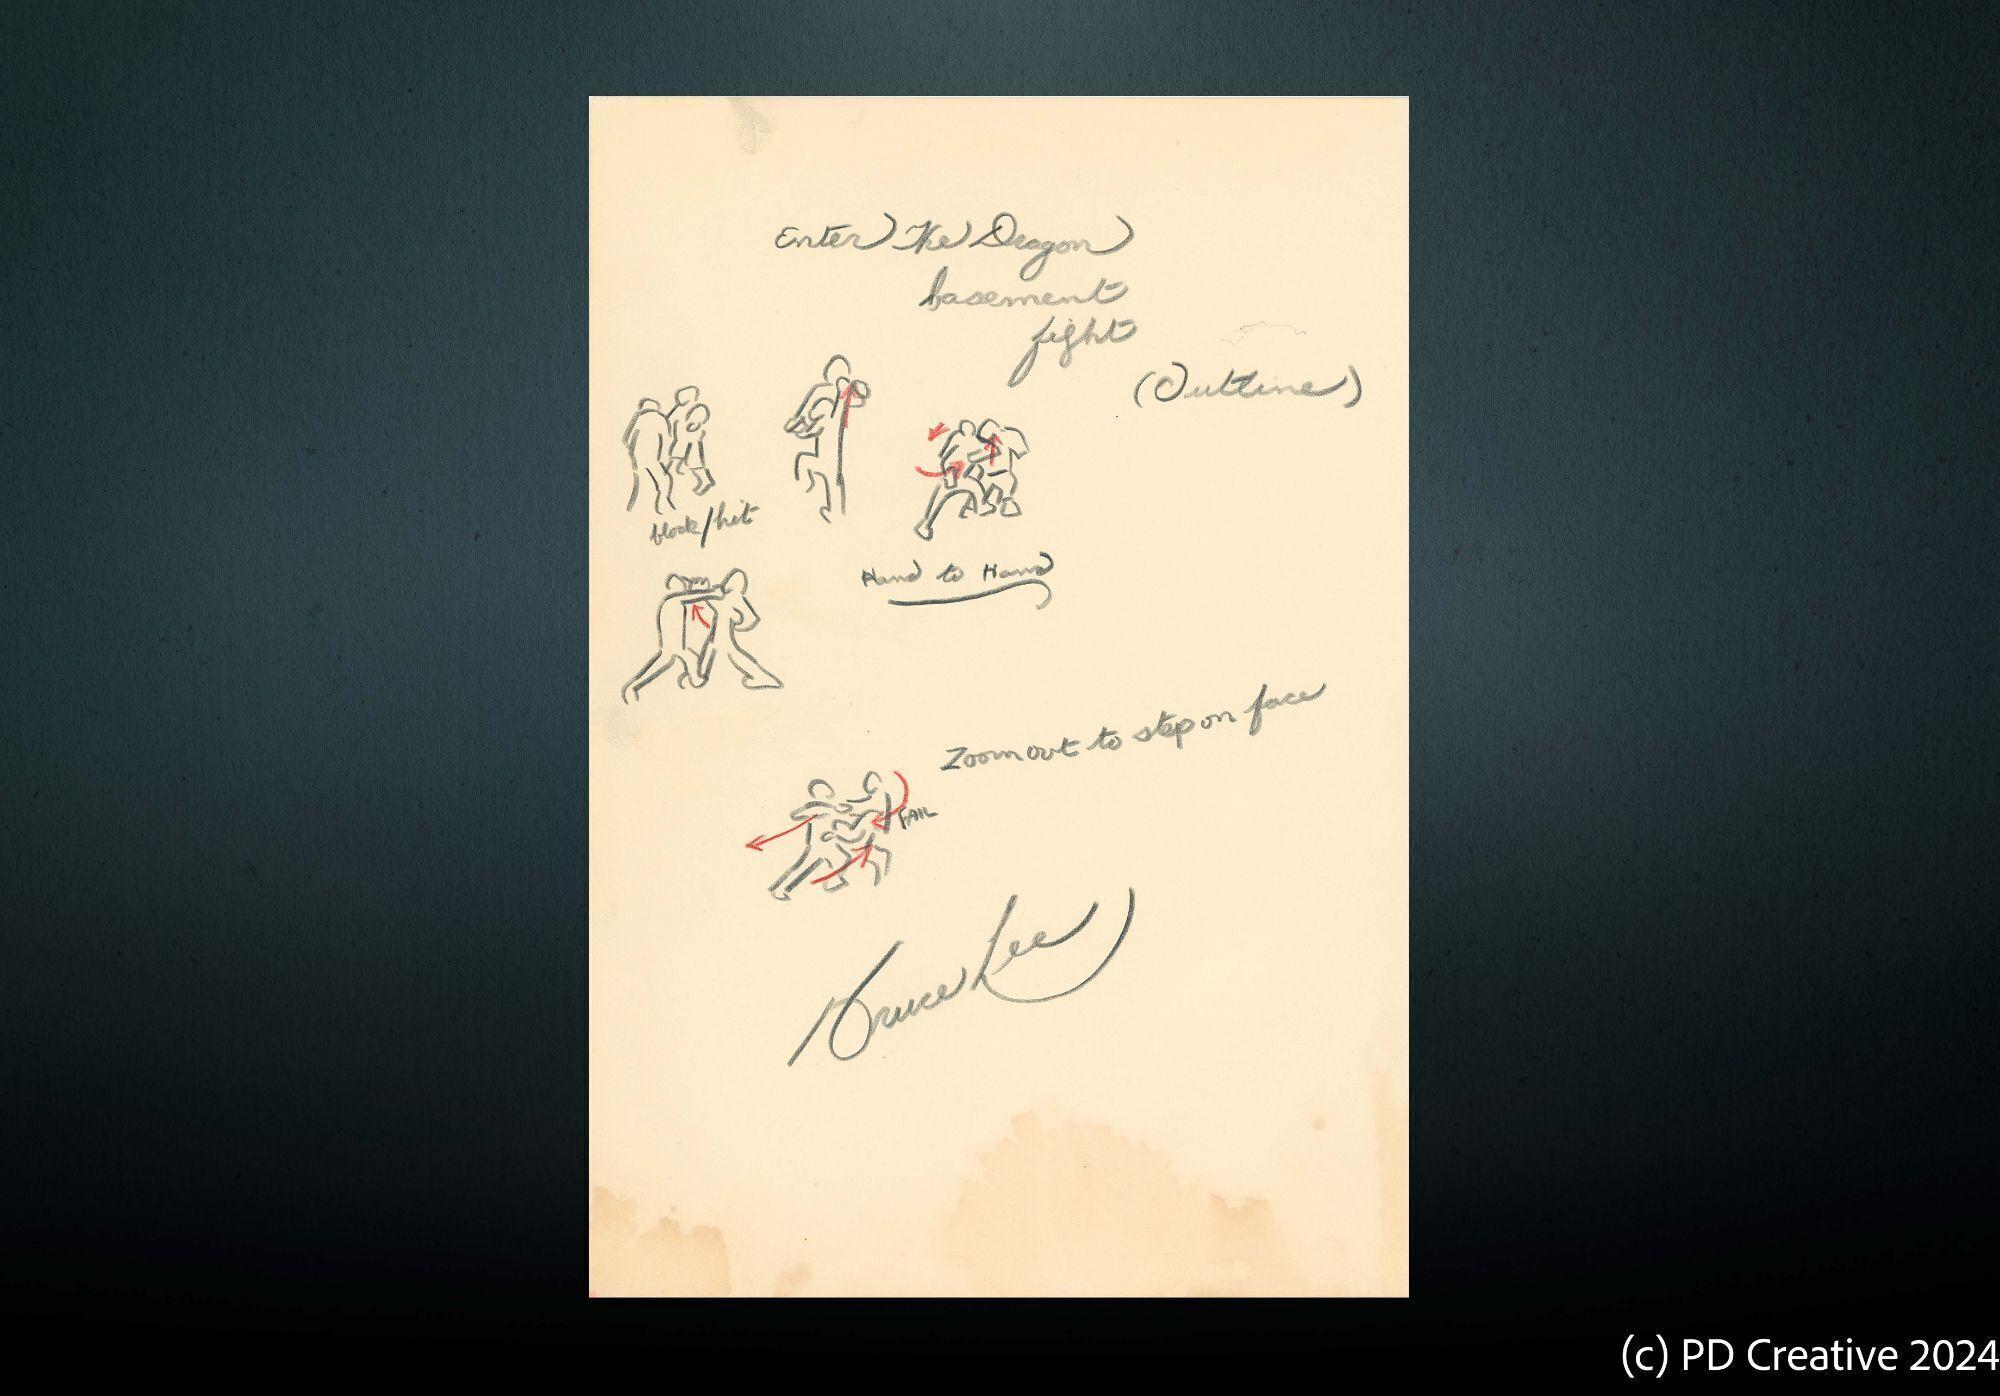 Enter The Dragon
basement
fight
(Outline)
block/hit
Hand to Hand
Zoom out to step on face
FAIL
Bruce Lee
(c) PD Creative 2024